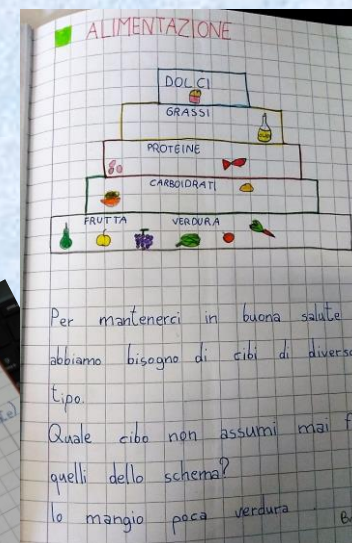 ALIMENTAZIONE
DOLCI
GRASSI
PROTEINE
CARBOIDRATI
FRUTTA VERDURA
Per mantenerci in buona salute
abbiamo bisogno di cibi di diverso
tipo.
Quale cibo non assumi mai
quelli dello schema?
Io mangio poca verdura